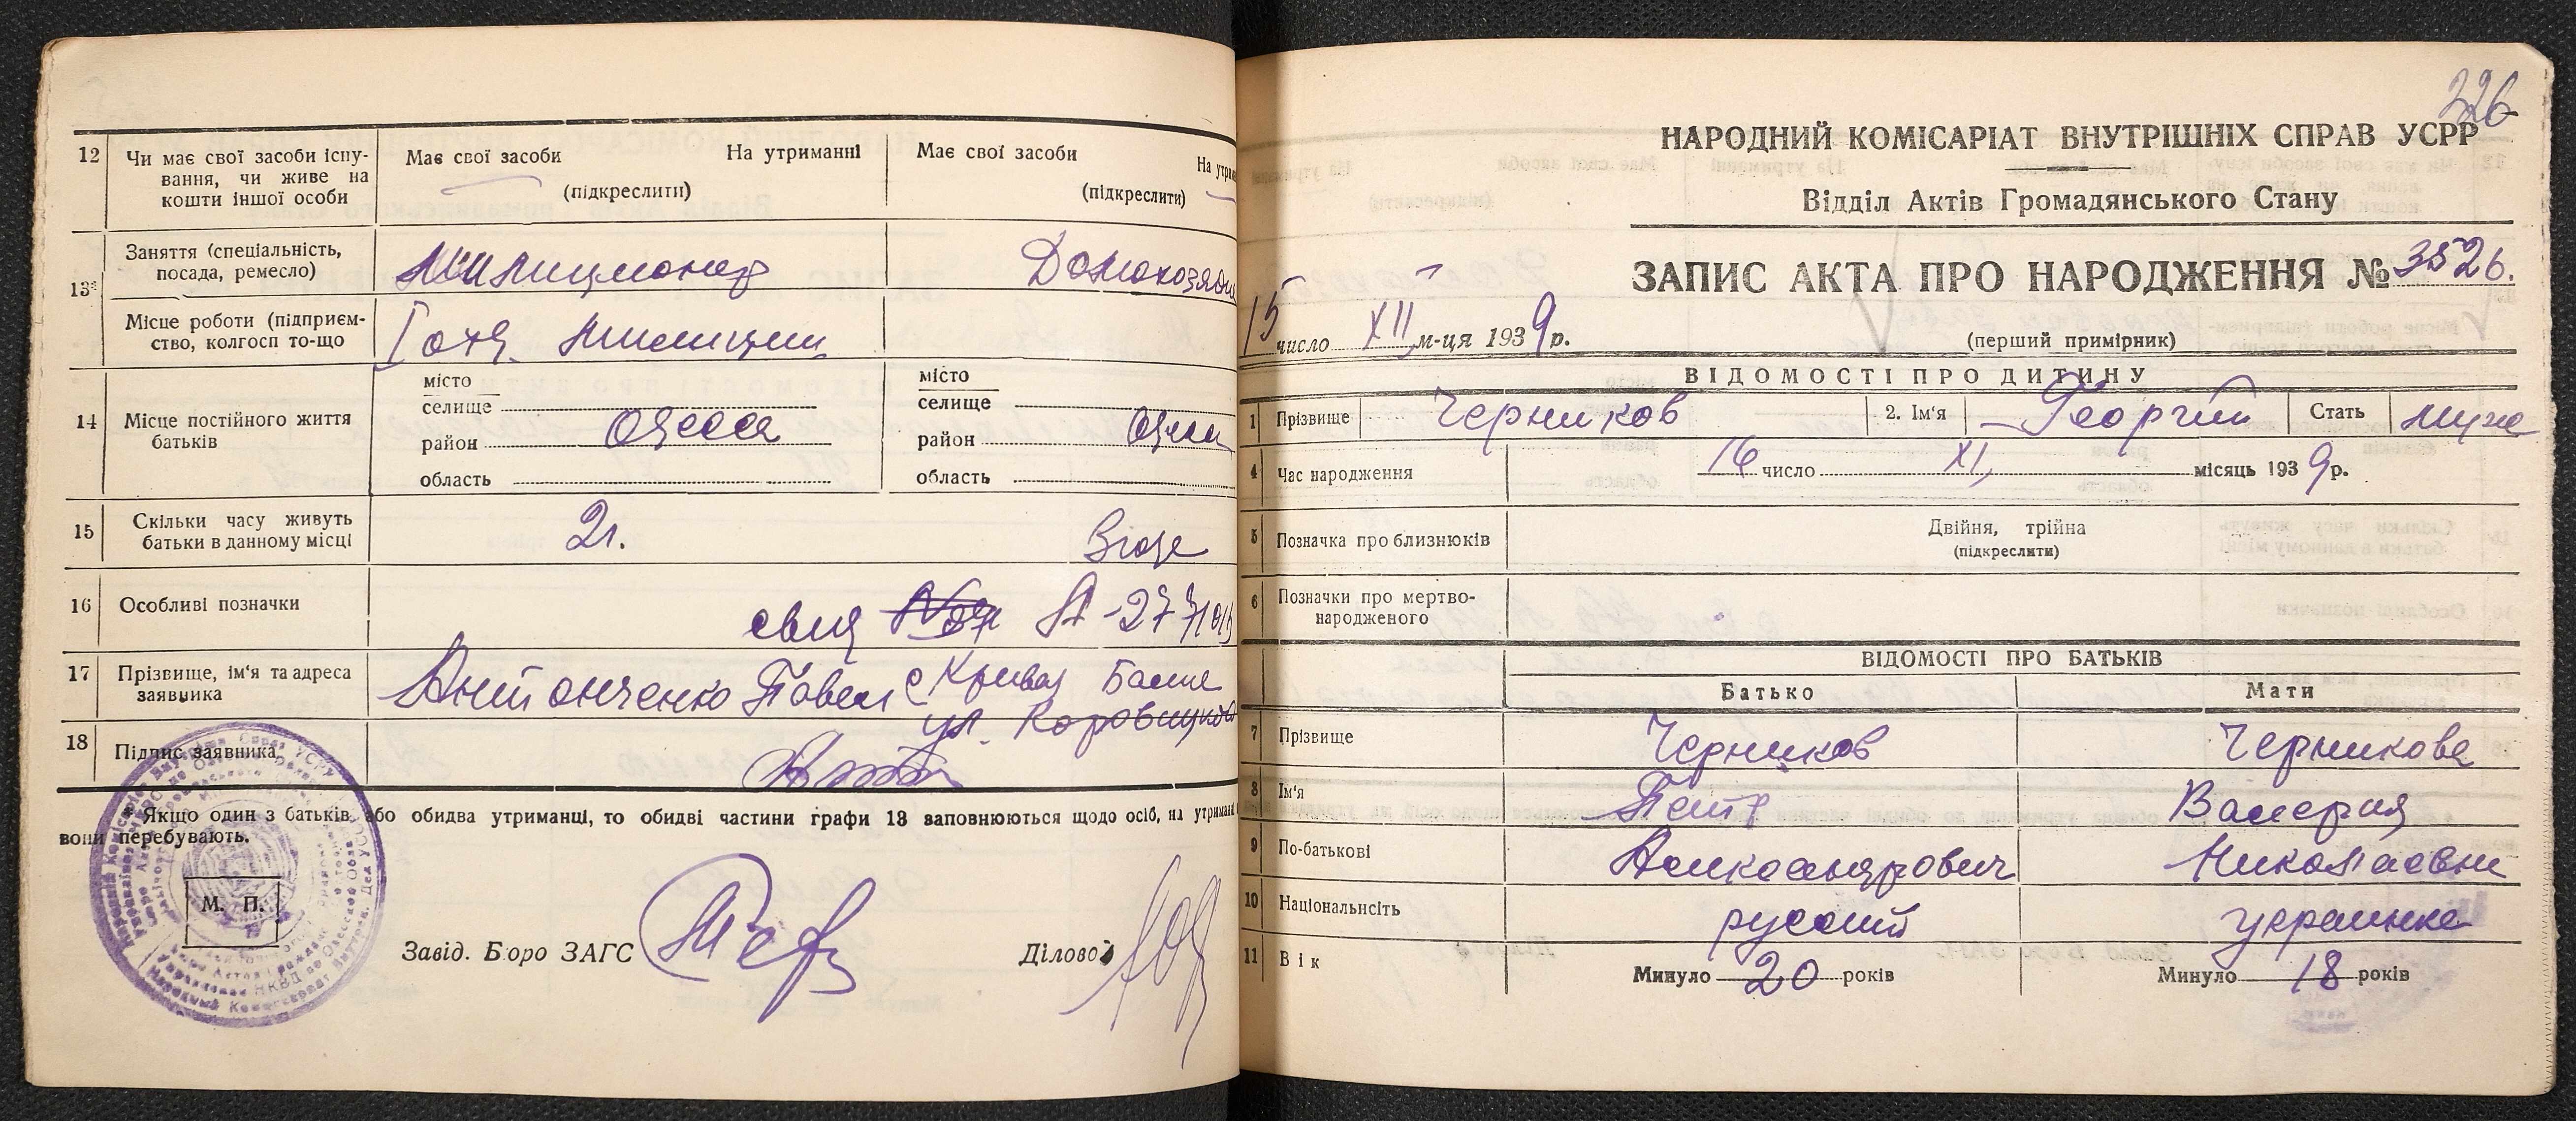 12 Чи має свої засоби існу-
вання, чи живе на
кошти іншої особи
Має свої засоби На утриманні
(підкреслити)
Має свої засоби
(підкреслити)
13* Заняття (спеціальність,
посада, ремесло)
Милиционер
Домохозяй
Місце роботи (підприєм-
ство, колгосп то-що
I отд. милиции
14 Місце постійного життя
батьків
місто
селище
район Одесса
область
місто
селище
район Одесса
область
15 Скільки часу живуть
батьки в данному місці
2г.
16 Особливі позначки
17 Прізвище, ім'я та адреса
заявника
Антонченко Павел с Кривая Балка
ул.
18 Підпис заявника
* Якщо один з батьків або обидва утриманці, то обидві частини графи 13 заповнюються щодо осіб, на утриманні
вони перебувають.
М. П.
Завід. Бюро ЗАГС
Діловод
326
НАРОДНИЙ КОМІСАРІАТ ВНУТРІШНІХ СПРАВ УСРР
Відділ Актів Громадянського Стану
ЗАПИС АКТА ПРО НАРОДЖЕННЯ № 3526.
15 число XII м-ця 1939 р.
(перший примірник)
ВІДОМОСТІ ПРО ДИТИНУ
1 Прізвище Черников 2. Ім'я Георгий Стать муж
4 Час народження 16 число XI, місяць 1939 р.
5 Позначка про близнюків Двійня, трійна
(підкреслити)
6 Позначки про мертво-
народженого
ВІДОМОСТІ ПРО БАТЬКІВ
Батько Мати
7 Прізвище Черников Черникова
8 Ім'я Петр Валерия
9 По-батькові Александрович Николаевна
10 Національнсіть русский украинка
11 Вік Минуло 20 років Минуло 18 років